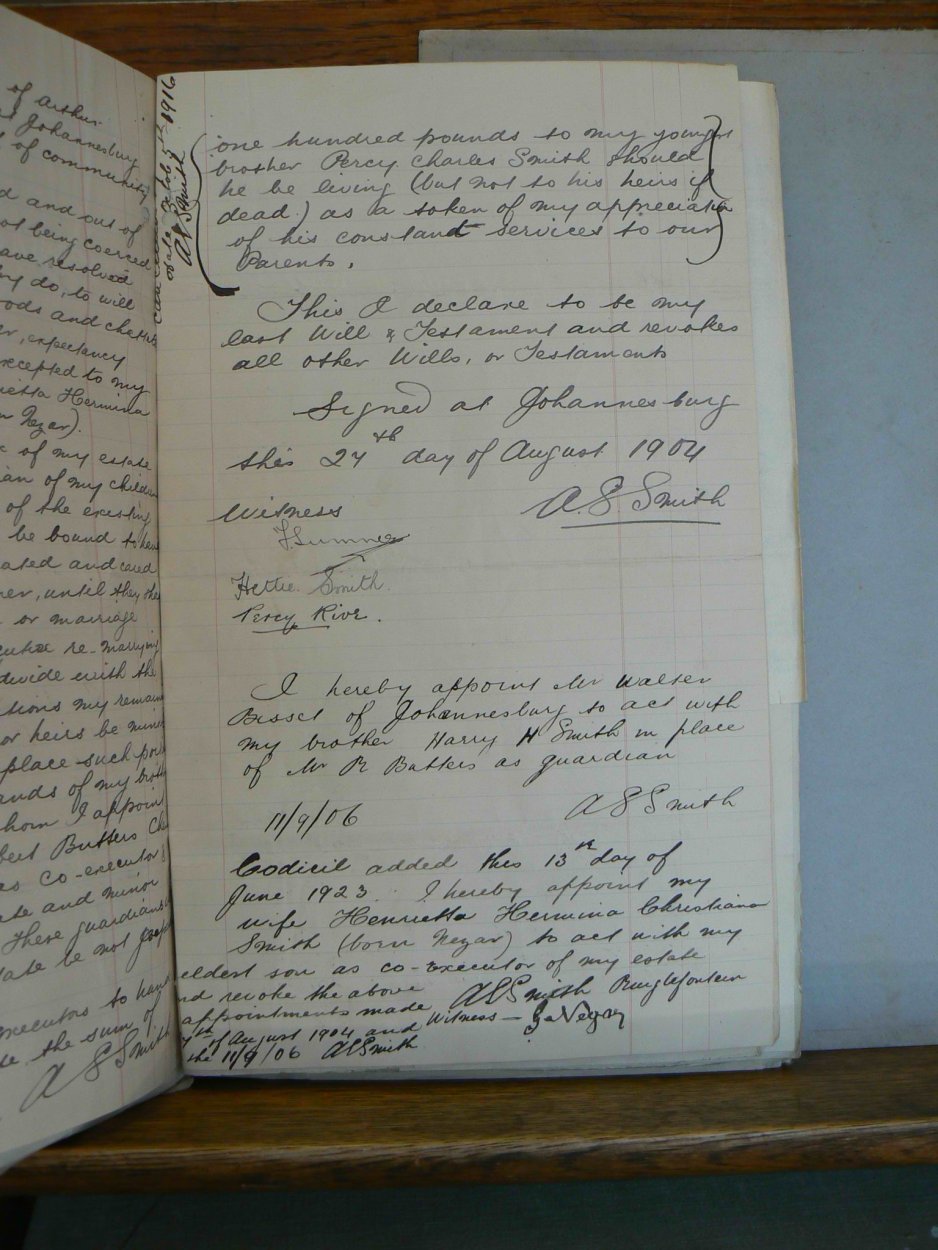 of Arthur
Johannesburg
of community
d and out of
ot being coerced
ave resolved
by do, to will
oods and chattels
er, expectancy
xcepted to my
rietta Hermina
n Nezar).
of my estate
ian of my children
of the existing
be bound to
cated and cared
her, until they
or marriage
re-marrying
divide with the
tions my remain
or heirs be minor
place such
ands of my brother
whom I appoint
bert Butters
as co-executor
ate and minor
These guardians
ate be not
executors to hand
the sum of
A E Smith
date Feb 5th 1916
AESmith
one hundred pounds to my youngest
brother Percy Charles Smith should
he be living (but not to his heirs if
dead.) as a token of my appreciation
of his constant services to our
Parents.
This I declare to be my
last Will & Testament and revokes
all other Wills, or Testaments
Signed at Johannesburg
this 24th day of August 1904
Witness A.E. Smith
Hettie Smith
Percy Rive.
I hereby appoint Mr Walter
Bisset of Johannesburg to act with
my brother Harry H Smith in place
of Mr R Butters as guardian
11/9/06 A E Smith
Codicil added this 13th day of
June 1923. I hereby appoint my
wife Henrietta Hermina Christiana
Smith (born Nezar) to act with my
eldest son as co-executor of my estate
nd revoke the above
appointments made AESmith
th of August 1904 and Witness –
the 11/9/06 AESmith